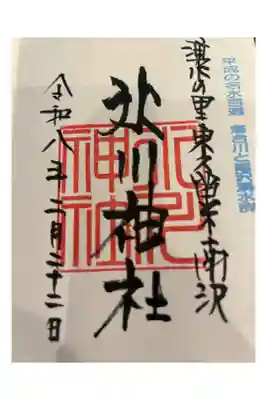 平成の名水百選
落合川と南沢湧水群
湧水の里東久留米南沢
氷川神社
氷川
神社
令和八年二月二十二日